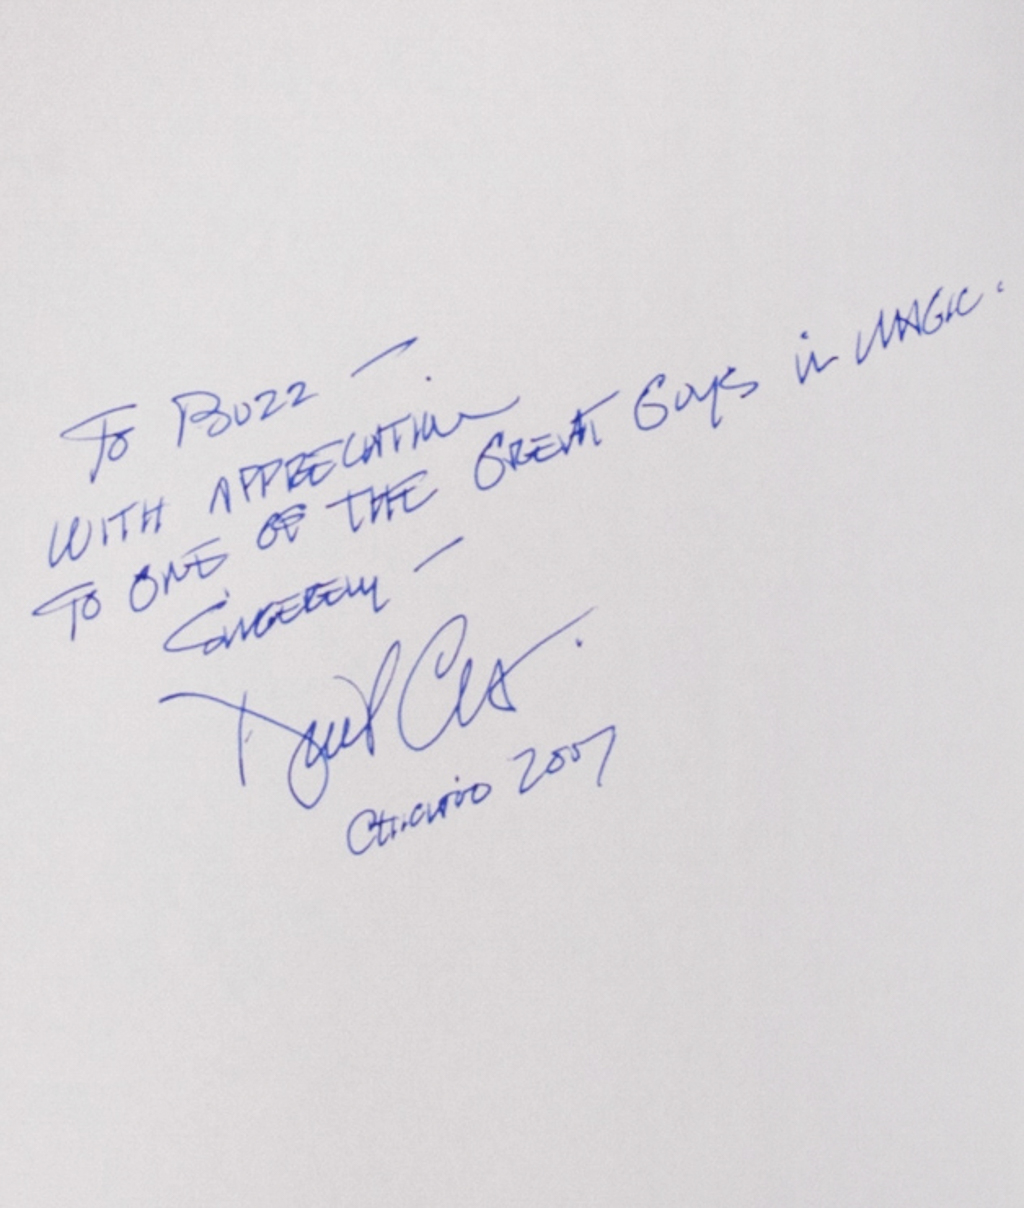 To Buzz —
WITH APPRECIATION
TO ONE OF THE GREAT GUYS in MAGIC.
SINCERELY —
David
CHICAGO 2007